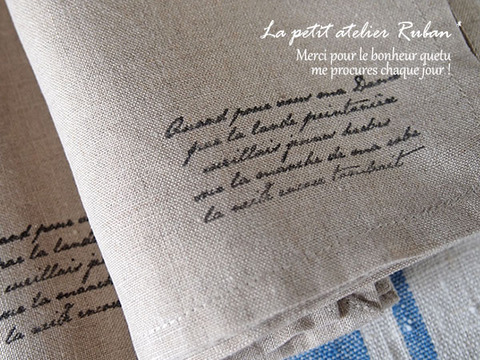 La petit atelier Ruban*
Merci pour le bonheur quetu
me procures chaque jour !
Quand pour vous ma Dame
par la lande printanière
cueillais jeunes herbes
sur la manche de ma robe
la neige encore tombait
and pour
par la lande
cueillais
sur la manche
la neige encore